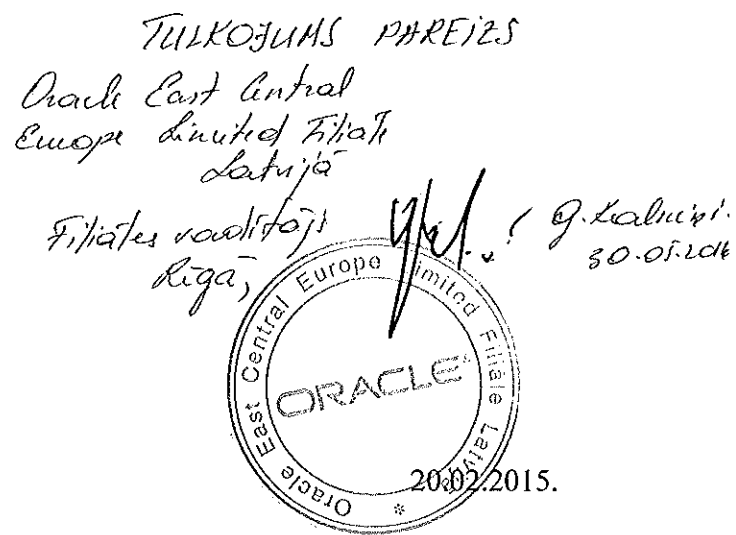 TULKOJUMS PAREIZS
Oracle East Central
Europe Limited Filiāle
Latvijā
Filiāles vadītājs
Rīgā,
30.05.2016
Oracle East Central Europe Limited Filiāle Latvijā *
ORACLE
20.02.2015.